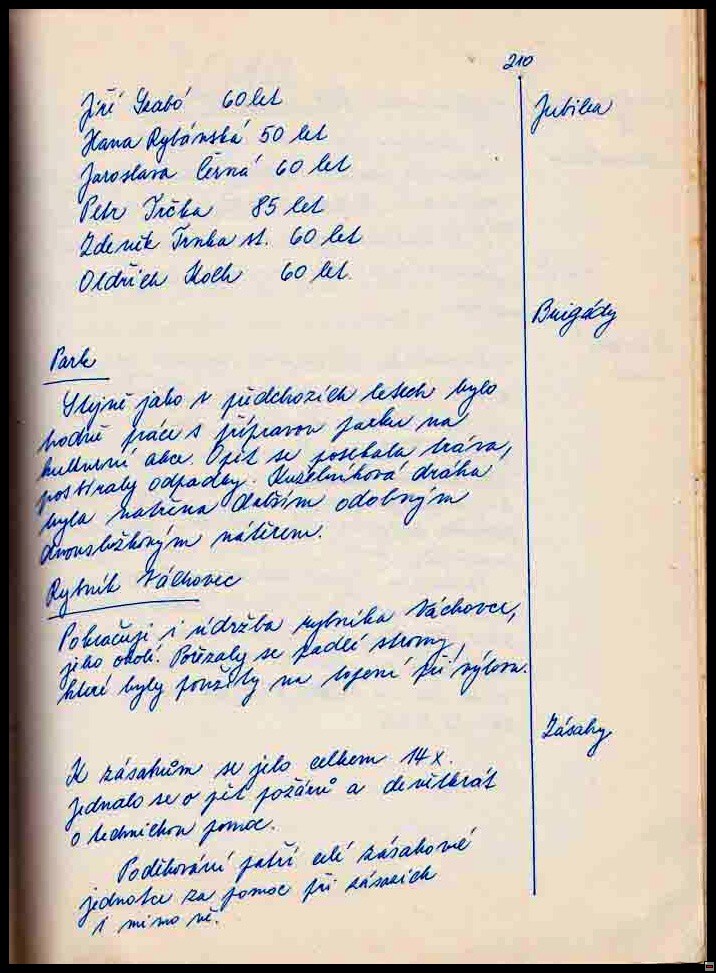 210
Jiří Szabó 60 let
Jubilea
Hana Rybánská 50 let
Jaroslava Černá 60 let
Petr Trčka 85 let
Zdeněk Trnka st. 60 let
Oldřich Koch 60 let
Brigády
Park
Stejně jako v předchozích letech bylo
hodně práce s přípravou parku na
kulturní akce. Opět se posekala tráva,
posbíraly odpadky. Kuželníková dráha
byla natřena dalším odobným
dvousložkovým nátěrem.
Rybník Váchovec
Pokračuji i údržba rybníka Váchovce,
jeho okolí. Pořezaly se padlé stromy,
které byly použity na topení při výlovu.
Zásahy
K zásahům se jelo celkem 14x.
Jednalo se o pět požárů a devětkrát
o technickou pomoc.
Poděkování patří celé zásahové
jednotce za pomoc při zásazích
i mimo ně.